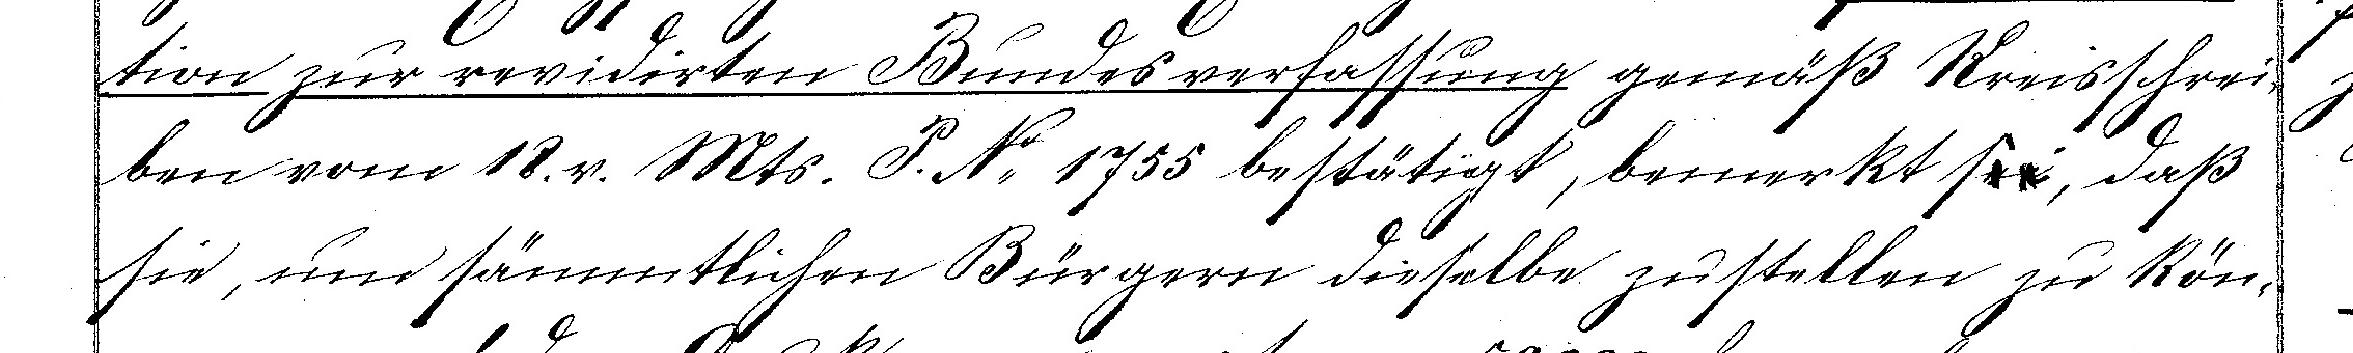 tion zur revidirten Bundesverfassung gemäß Kreisschrei-
ben vom 18. v. Mts. P. No 1755 bestätigt, bemerkt sei, daß
sie, um sämmtlichen Bürgern dieselbe zustellen zu kön-